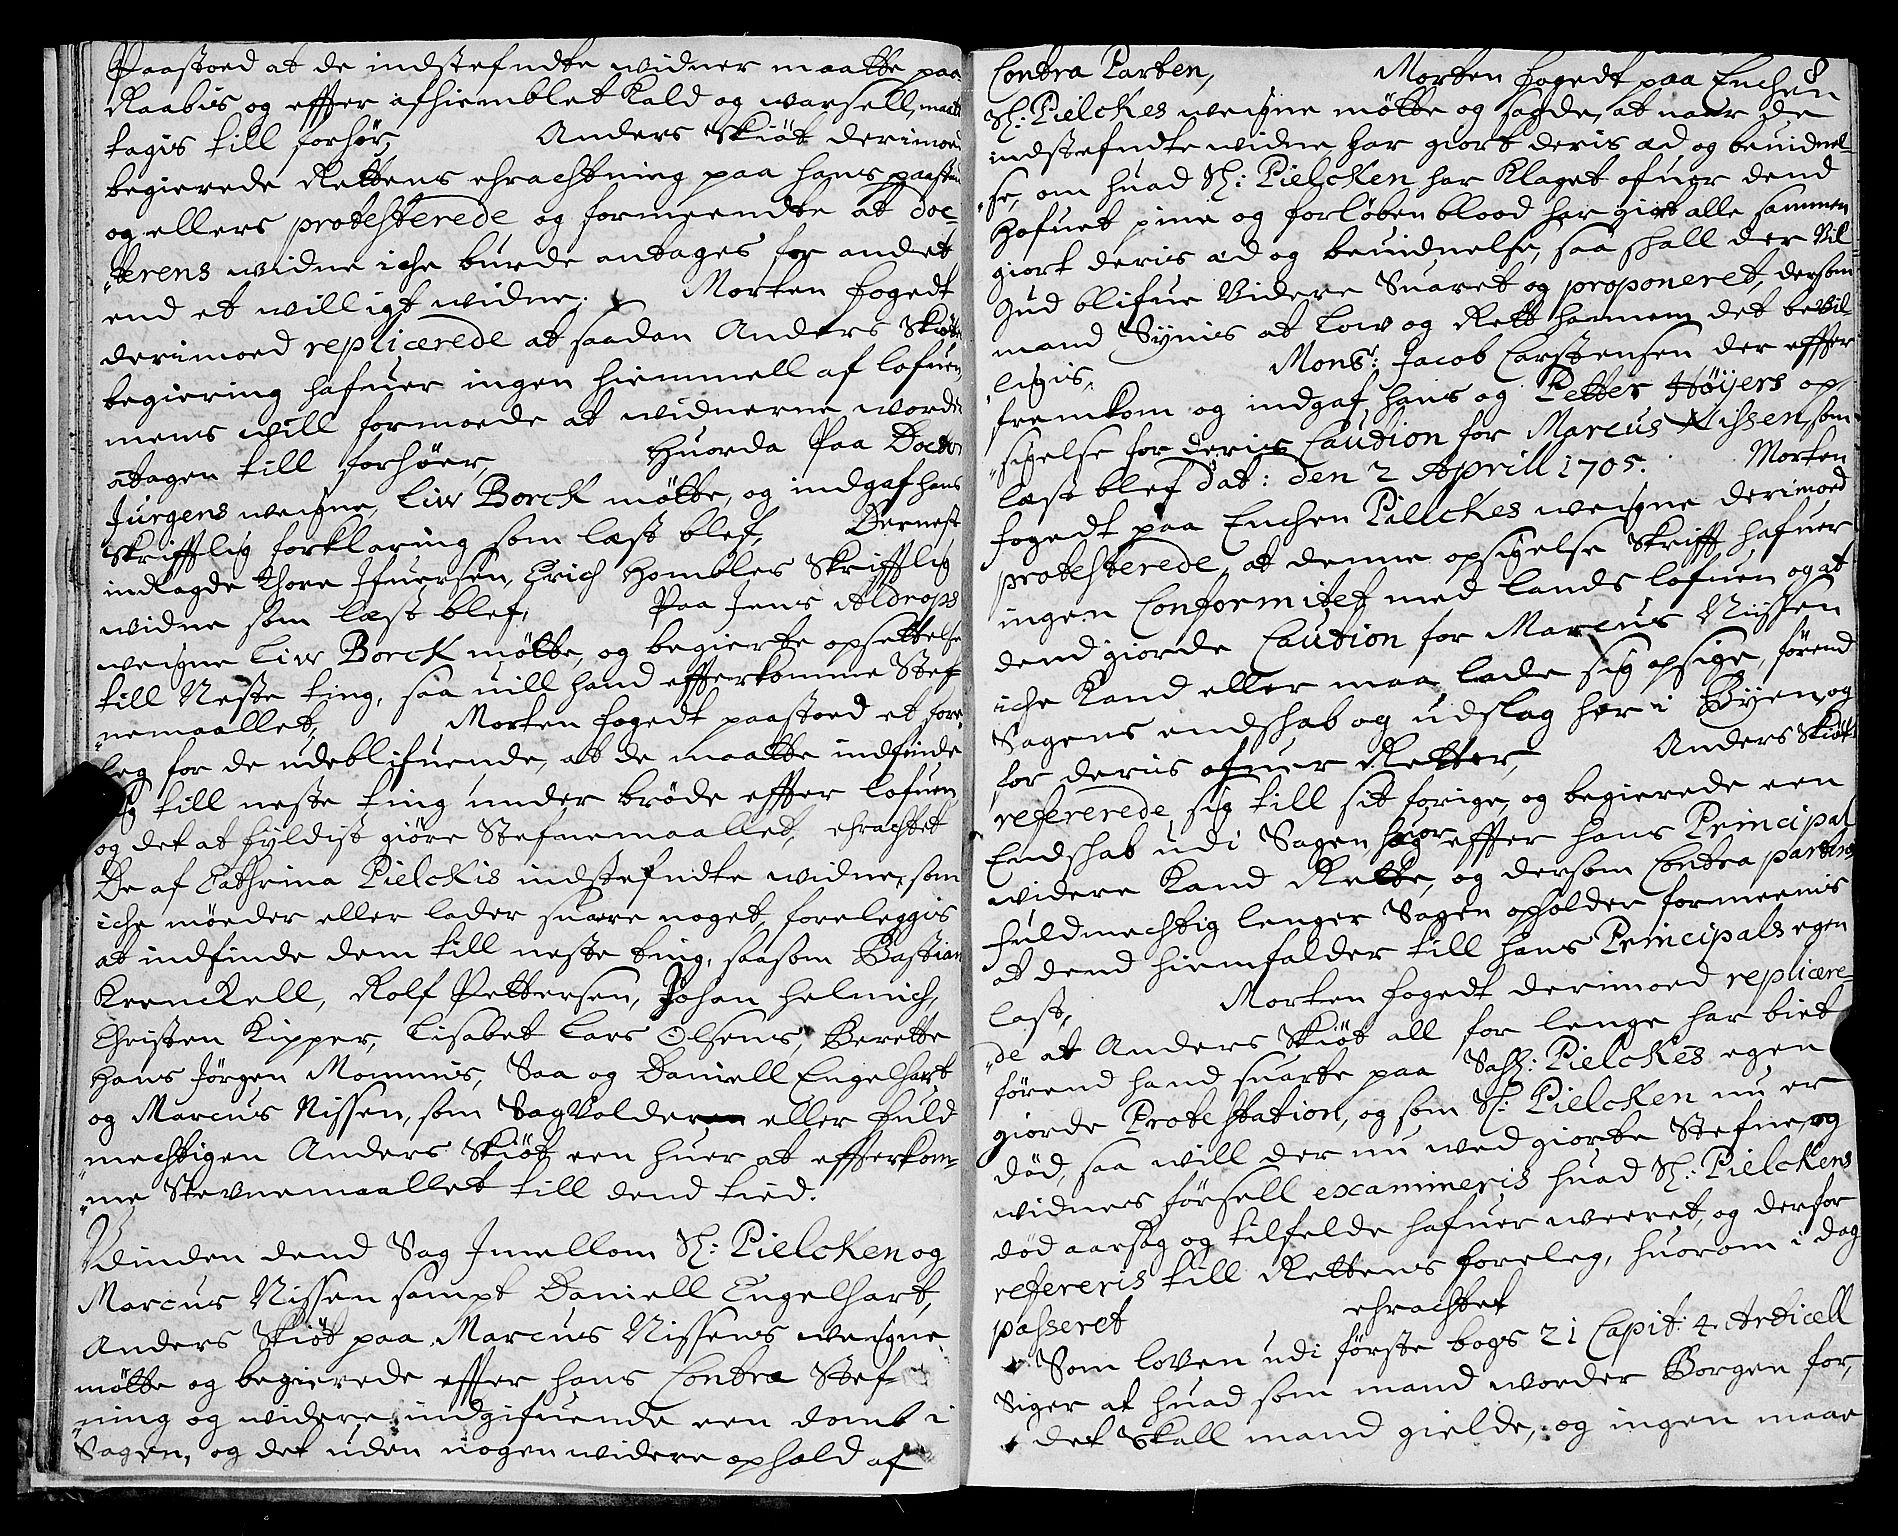 Paastoed at de indstefndte widner maatte paa
Raabis og effter afhiemblet Kald og warsell, maatt
tagis till forhør, Anders Skiøt derimoed
begierede Rettens ehrachtning paa hans paastan
og ellers protesterede og formeendte at doc-
terens widne iche burde antages for andet
end et willigt widne. Morten fogedt
derimoed replicerede at saadan Anders Skiøts
begiering hafuer ingen hiemmell af lofuen,
mens will formoede at widnerne worder
atagen till forhøer, Huorda Paa Doctor
Jürgens weigne, Liw Borck møtte, og indgaf hans
Skrifftlig forklaring som læst blef, Dernest
indlagde Thore Ifuersen, Erich Hombles Skrifftlig
widne som læst blef, Paa Jens Aldrops
weigne Liw Borck møtte, og begierte opsettelse
till Neste ting, saa uill hand effterkomme Stef-
nemaallet, Morten fogedt paastoed et fore-
leg for de udeblifuende, at de maatte indfinde
sig till neste ting under brøde effter lofuen
og det at fyldist giøre Stefnemaallet, ehrachtet
De af Cathrina Pielckis indstefndte widne, som
iche møeder eller lader suare noget, foreleggis
at indfinde dem till neste ting, saasom Bastian
Krenckell, Rolf Pettersen, Johan Helmich,
Christen Kipper, Lisabet Lars Olsens, Berette
Hans Jørgen Mommis, Saa og Daniell Engelhart
og Marcus Nissen, som Sagvolder eller fuld
mechtigen Anders Skiøt een huer at effterkom-
me Stevnemaallet till dend tied.
Udinden dend Sag Imellom Sl: Pielcken og
Marcus Nissen sampt Daniell Engelhart,
Anders Skiøt paa Marcus Nissens weigne
møtte og begierede effter hans Contra Stef-
ning og widere indgifuende een domb i
Sagen, og det uden nogen widere ophold af
8
Contra Parten, Morten fogedt paa Enchen
Sl: Pielckes weigne møtte og sagde, at naar de
indstefndte widne har giort deris æd og beuidnel-
se, om huad Sl: Pielcken har Klaget ofuer dend
Hofuet pine og forløben blood har giort alle sammen
giort deris æd og beuidnelse, saa shall der Vil-
Gud blifue Videre Suaret og proponeret, dersom
mand Synis at Low og Rett hannem det bevil-
ligis, Mons: Jacob Carstensen der effter
fremkom og indgaf hans og Petter Høyers op-
sigelse for deris Caution for Marcus Nissen, som
læst blef dat: den 2 Aprill 1705. Morten
fogedt paa Enchen Pielckes weigne derimoed
protesterede, at denne opsigelse Skrifft hafuer
ingen Conformitet med lands lofuen og at
dend giorde Caution for Marcus Nissen
iche Kand eller maa lade sig opsige, førend
Sagens endshab og udslag her i Byen, og
for deris ofuer Retter, Anders Skiøt
refererede sig till sit forige, og begierede een
Endshab udi Sagen huor effter hans Principal
widere Kand Rette, og dersom Contra partens
fuldmechtig lenger Sagen opholder formeenis
at dend hiemfalder till hans Principals egen
last, Morten fogedt derimoed replicere-
de at Anders Skiøt all for lenge har biet
førend hand suarte paa Sahl: Pielckes egen
giorde Protestation, og som Sl: Pielcken nu er
død, saa will der nu wed giorte Stefne, og
widnes førsell examineris huad Sl: Pielckens
død aarsag og tilfelde hafuer weeret, og derfor
refereris till Rettens foreleg, huorom i dag
passeret ehrachtet
Som loven udi første bogs 21 Capit: 4 Articell
Siger at huad som mand worder Borgen for,
det Skall mand gielde, og ingen maae